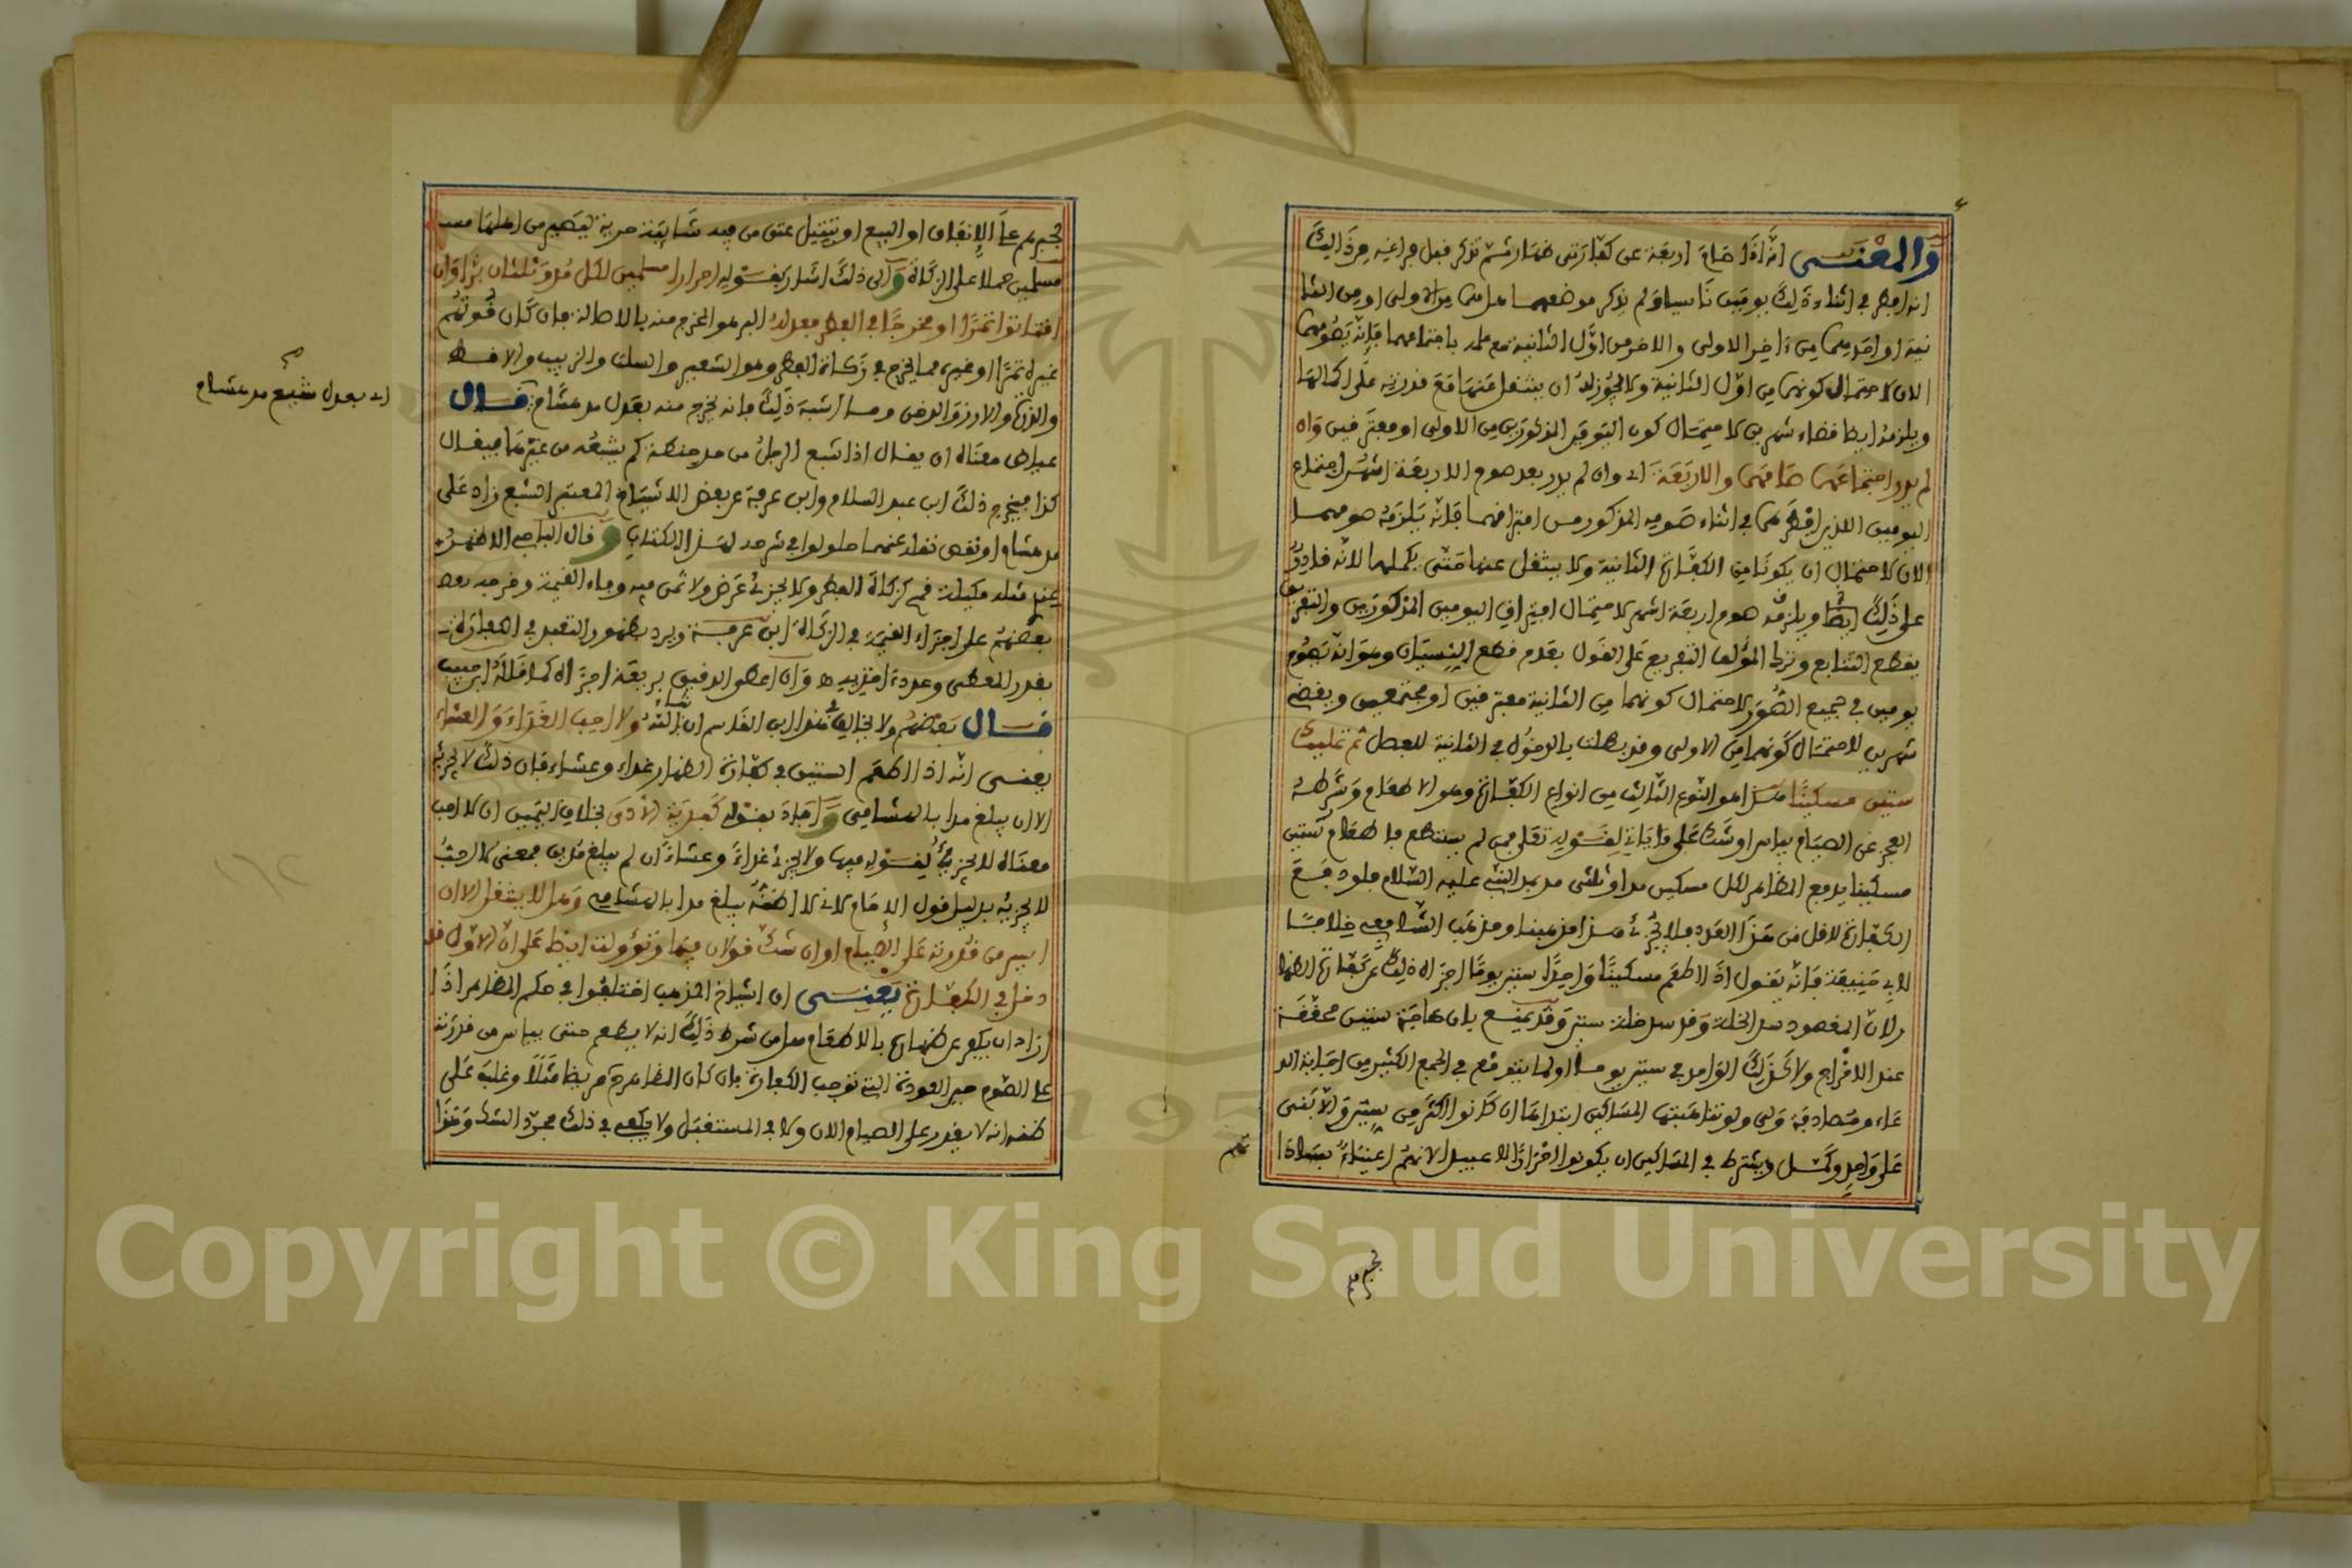 والمعنى انه اذا صام اربعة عن كفارتي ظهار ثم تذكر قبل فراغه من ذالك
انه افطر في اثناء ذلك يومين ناسيا ولم يذكر موضعهما هل هما من الاولى او من الثا
نية او احدهما من ءاخر الاولى والاخر من اول الثانية مع علمه باجتماعهما فانه يصومهما
الان لاحتمال كونهما من اول الثانية ولا يجوز له ان ينتقل عنها مع قدرته على اكمالها
ويلزمه ايضا قضاء شهرين لاحتمال كون اليومين المذكورين من الاولى او مفترقين وان
لم يدر اجتماعهما صامهما والاربعة اي وان لم يدر بعد صوم الاربعة اشهر اجتماع
اليومين اللذين افطرهما في اثناء صومه المذكور من افتراقهما فانه يلزمه صومهما
الان لاحتمال ان يكونا من الكفارة الثانية ولا ينتقل عنها حتى يكملها لانه قادر
على ذلك ايضا ويلزمه صوم اربعة اشهر لاحتمال افتراق اليومين المذكورين والتفريق
يقطع التتابع وترك المؤلف التفريع على القول بعدم قطع النسيان وهو انه يصوم
يومين في جميع الصور لاحتمال كونهما من الثانية مفترقين او مجتمعين ويقضي
شهرين لاحتمال كونهما من الاولى وقد بطلت بالدخول في الثانية للفصل ثم تمليك
ستين مسكينا هذا هو النوع الثالث من انواع الكفارة وهو الاطعام وشرطه
العجز عن الصيام بياس او شك على ما ياتي لقوله تعالى فمن لم يستطع فاطعام ستين
مسكينا يدفع المظاهر لكل مسكين مدا وثلثي مد بمد النبي عليه السلام فلو دفع
الكفارة لاقل من هذا العدد فلا يجزئ هذا مذهبنا ومذهب الشافعي خلافا
لابي حنيفة فانه يقول اذا اطعم مسكينا واحدا ستين يوما اجزاه ذلك عن كفارة الظهار
لان المقصود سد الخلة وقد سد خلة ستين وقد يمنع بان حاجة ستين محققة
عند الاخراج ولا كذلك الواحد في ستين يوما ولما يتوقع في الجمع الكثير من اجابة الد
عاء ومصادفة ولي ولو تناهبتها المساكين ابتداها ان كانوا اكثر من ستين والا بنى
على واحد وكمل ويشترط في المساكين ان يكونوا احرارا لا عبيدا لانهم اغنياء بسادا
تهم
يجبرهم
يجبرهم على الانفاق او البيع او بتنجيز عتق من فيه شائبة حرية ليصير من اهلها مسـ
مسلمين حملا على الزكاة والى ذلك اشار بقوله احرارا مسلمين لكل مد وثلثان برا وان
اقتاتوا تمرا او مخرجا في الفطر فعدله البر هو المخرج منه بالاصالة فان كان قوتهم
غيره تمرا او غيره مما يخرج في زكاة الفطر وهو الشعير والسلت والزبيب والاقط
والذرة والارز والدخن وما اشبه ذلك فانه يخرج منه بعدل مد هشام قال
عياض معناه ان يقال اذا شبع الرجل من مد حنطة كم يشبعه من غيرها فيقال
كذا فيخرج ذلك ابن عبد السلام وابن عرفة عن بعض الاشياخ المعتبر الشبع زاد على
مد هشام او نقص نقله عنهما حلولو في شرحه لهذا الكتاب وقال الباجي الاظهر
عندي مثله مكيلة قمح كزكاة الفطر ولا يجزئ عرض ولا ثمن فيه وفاء القيمة وخرجه بعض
بعضهم على اجزاء القيمة في الزكاة ابن عرفة ويرد بظهور التعبد في الكفارة
بقدر المعطى وعدده اخذيه وان اعطى الدقيق بريعه اجزاه كما قاله ابن حبيب
قال بعضهم ولا يخالف هذا ابن القاسم ان شاء الله ولا احب الغداء والعشاء
يعني انه اذا اطعم الستين في كفارة الظهار غداء وعشاء فان ذلك لا يجزئه
الا ان يبلغ مدا بالهشامي وافاد بقوله كفدية الاذى بخلاف اليمين ان لا احب
معناه لا يجزئ لقوله فيها ولا يجزئ غداء وعشاء ان لم يبلغ مدين فمعنى لا احب
لا يجزيه بدليل قول الامام لاني لا اظنه يبلغ مدا بالهشامي وهل لا ينتقل الا ان
ايس من قدرته على الصيام او ان شك قولان فيها وتؤولت ايضا على ان الاول قد
دخل في الكفارة يعني ان اشياخ المذهب اختلفوا في حكم المظاهر اذا
اراد ان يكفر عن ظهاره بالاطعام هل من شرط ذلك انه لا يطعم حتى يياس من قدرته
على الصوم حين العودة التي توجب الكفارة بان كان المظاهر مريضا مثلا وغلب على
ظنه انه لا يقدر على الصيام الان ولا في المستقبل ولا يكفي في ذلك مجرد الشك وهذا
اي بعدل شبع مد هشام
Copyright © King Saud University
195